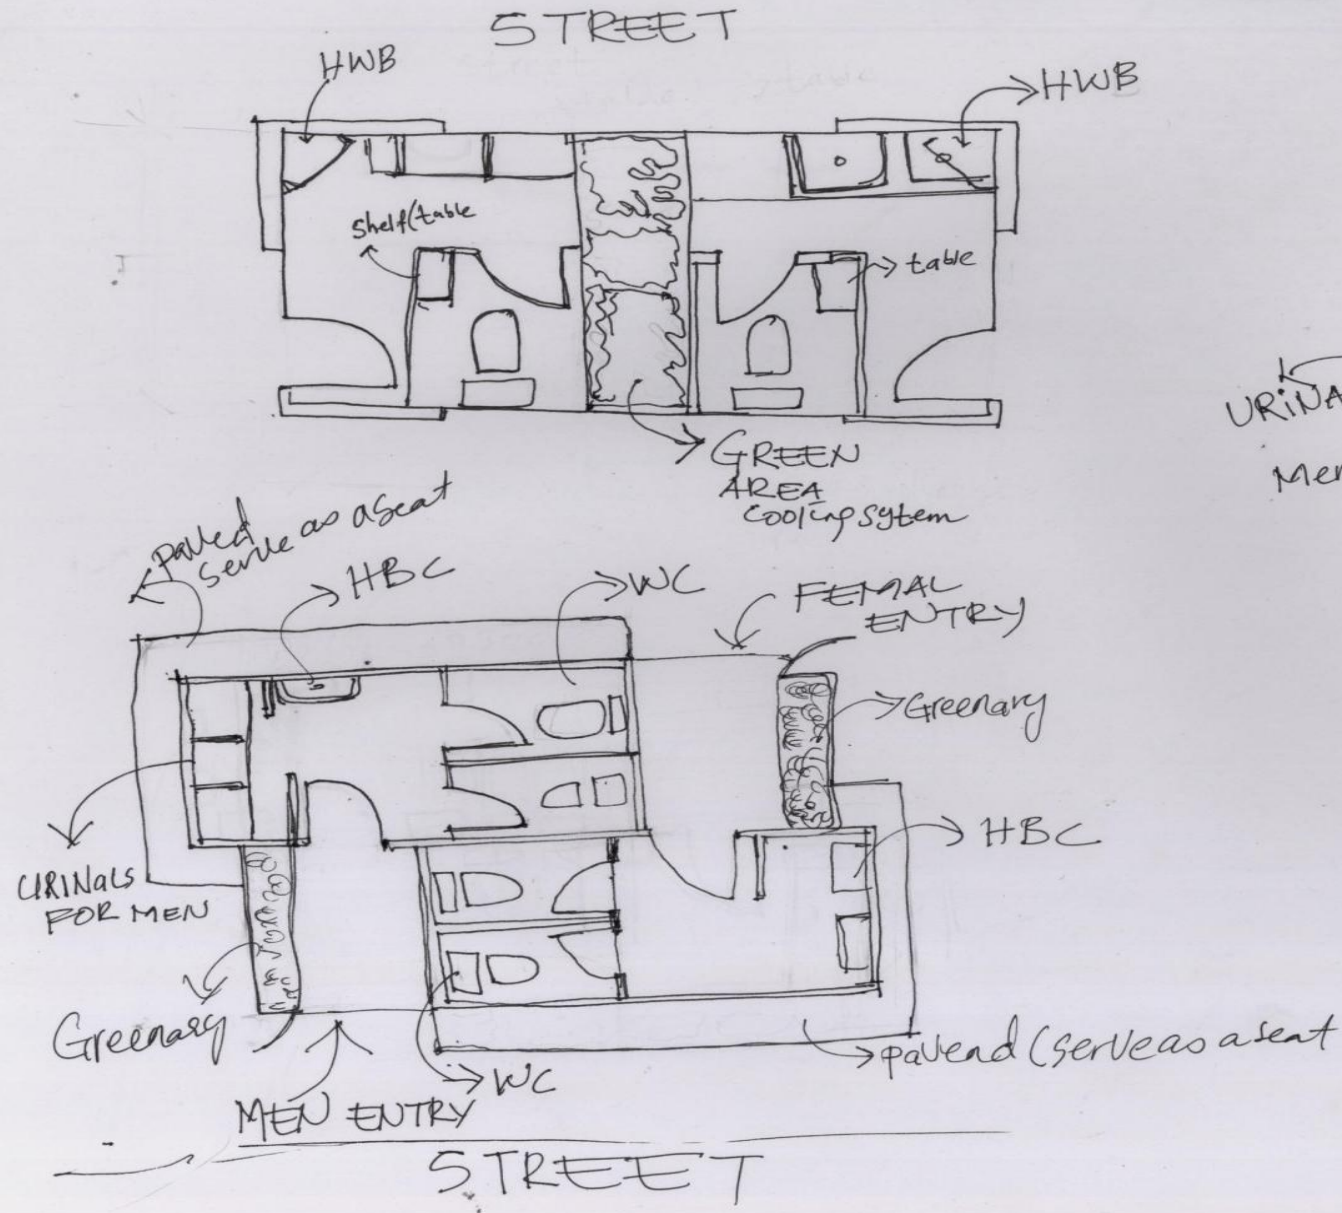 STREET
HWB
HWB
shelf(table
table
GREEN
AREA
cooling sytem
URINA
Men
paved
serve as a seat
HBC
WC
FEMAL
ENTRY
Greenary
HBC
URINALS
FOR MEN
Greenary
pavend (serve as a seat
WC
MEN ENTRY
STREET